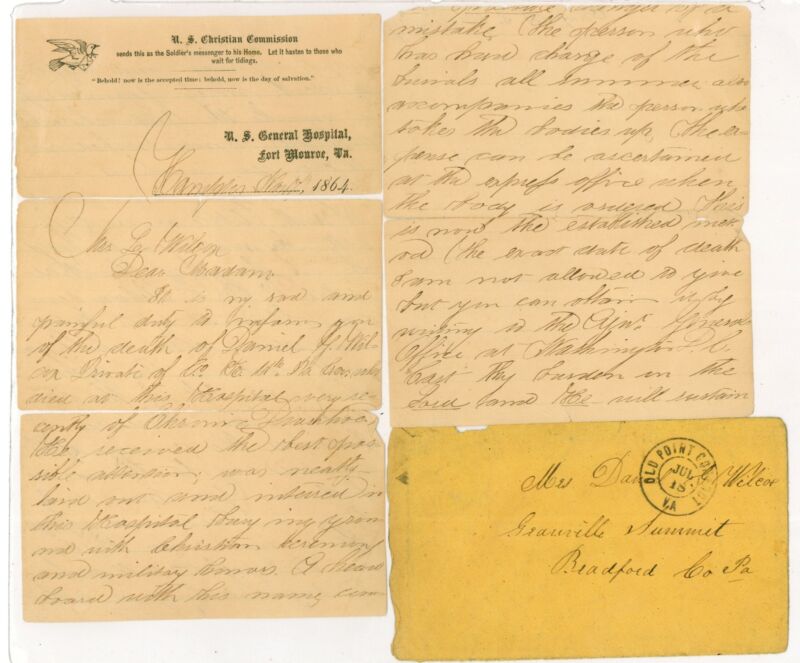 U. S. Christian Commission
sends this as the Soldier's messenger to his Home. Let it hasten to those who
wait for tidings.
"Behold! now is the accepted time; behold, now is the day of salvation."
U. S. General Hospital,
Fort Monroe, Va.
1864.
Mrs
Dear Madam
It is my sad and
painful duty to inform you
of the death of Daniel
Private of Co.
died at this Hospital very re
cently of Chronic
He received the best pos
sible attention, was neatly
laid out and interred in
this Hospital burying groun
nd with Christian ceremony
and military honors. A head
board with his name, com
mistake. The person who
has had charge of the
burials all summer also
accompanies the person who
takes the bodies up, The ex-
pense can be ascertained
at the express office when
the body is ordered This
is now the established meth
od (the exact date of death
I am not allowed to give
but you can obtain by
writing to the General
Office at Washington D. C.
Cast thy burden on the
Lord and He will sustain
OLD POINT COMFORT
JUL
18
VA
Mrs Dan Wilcox
Granville Summit
Bradford Co Pa